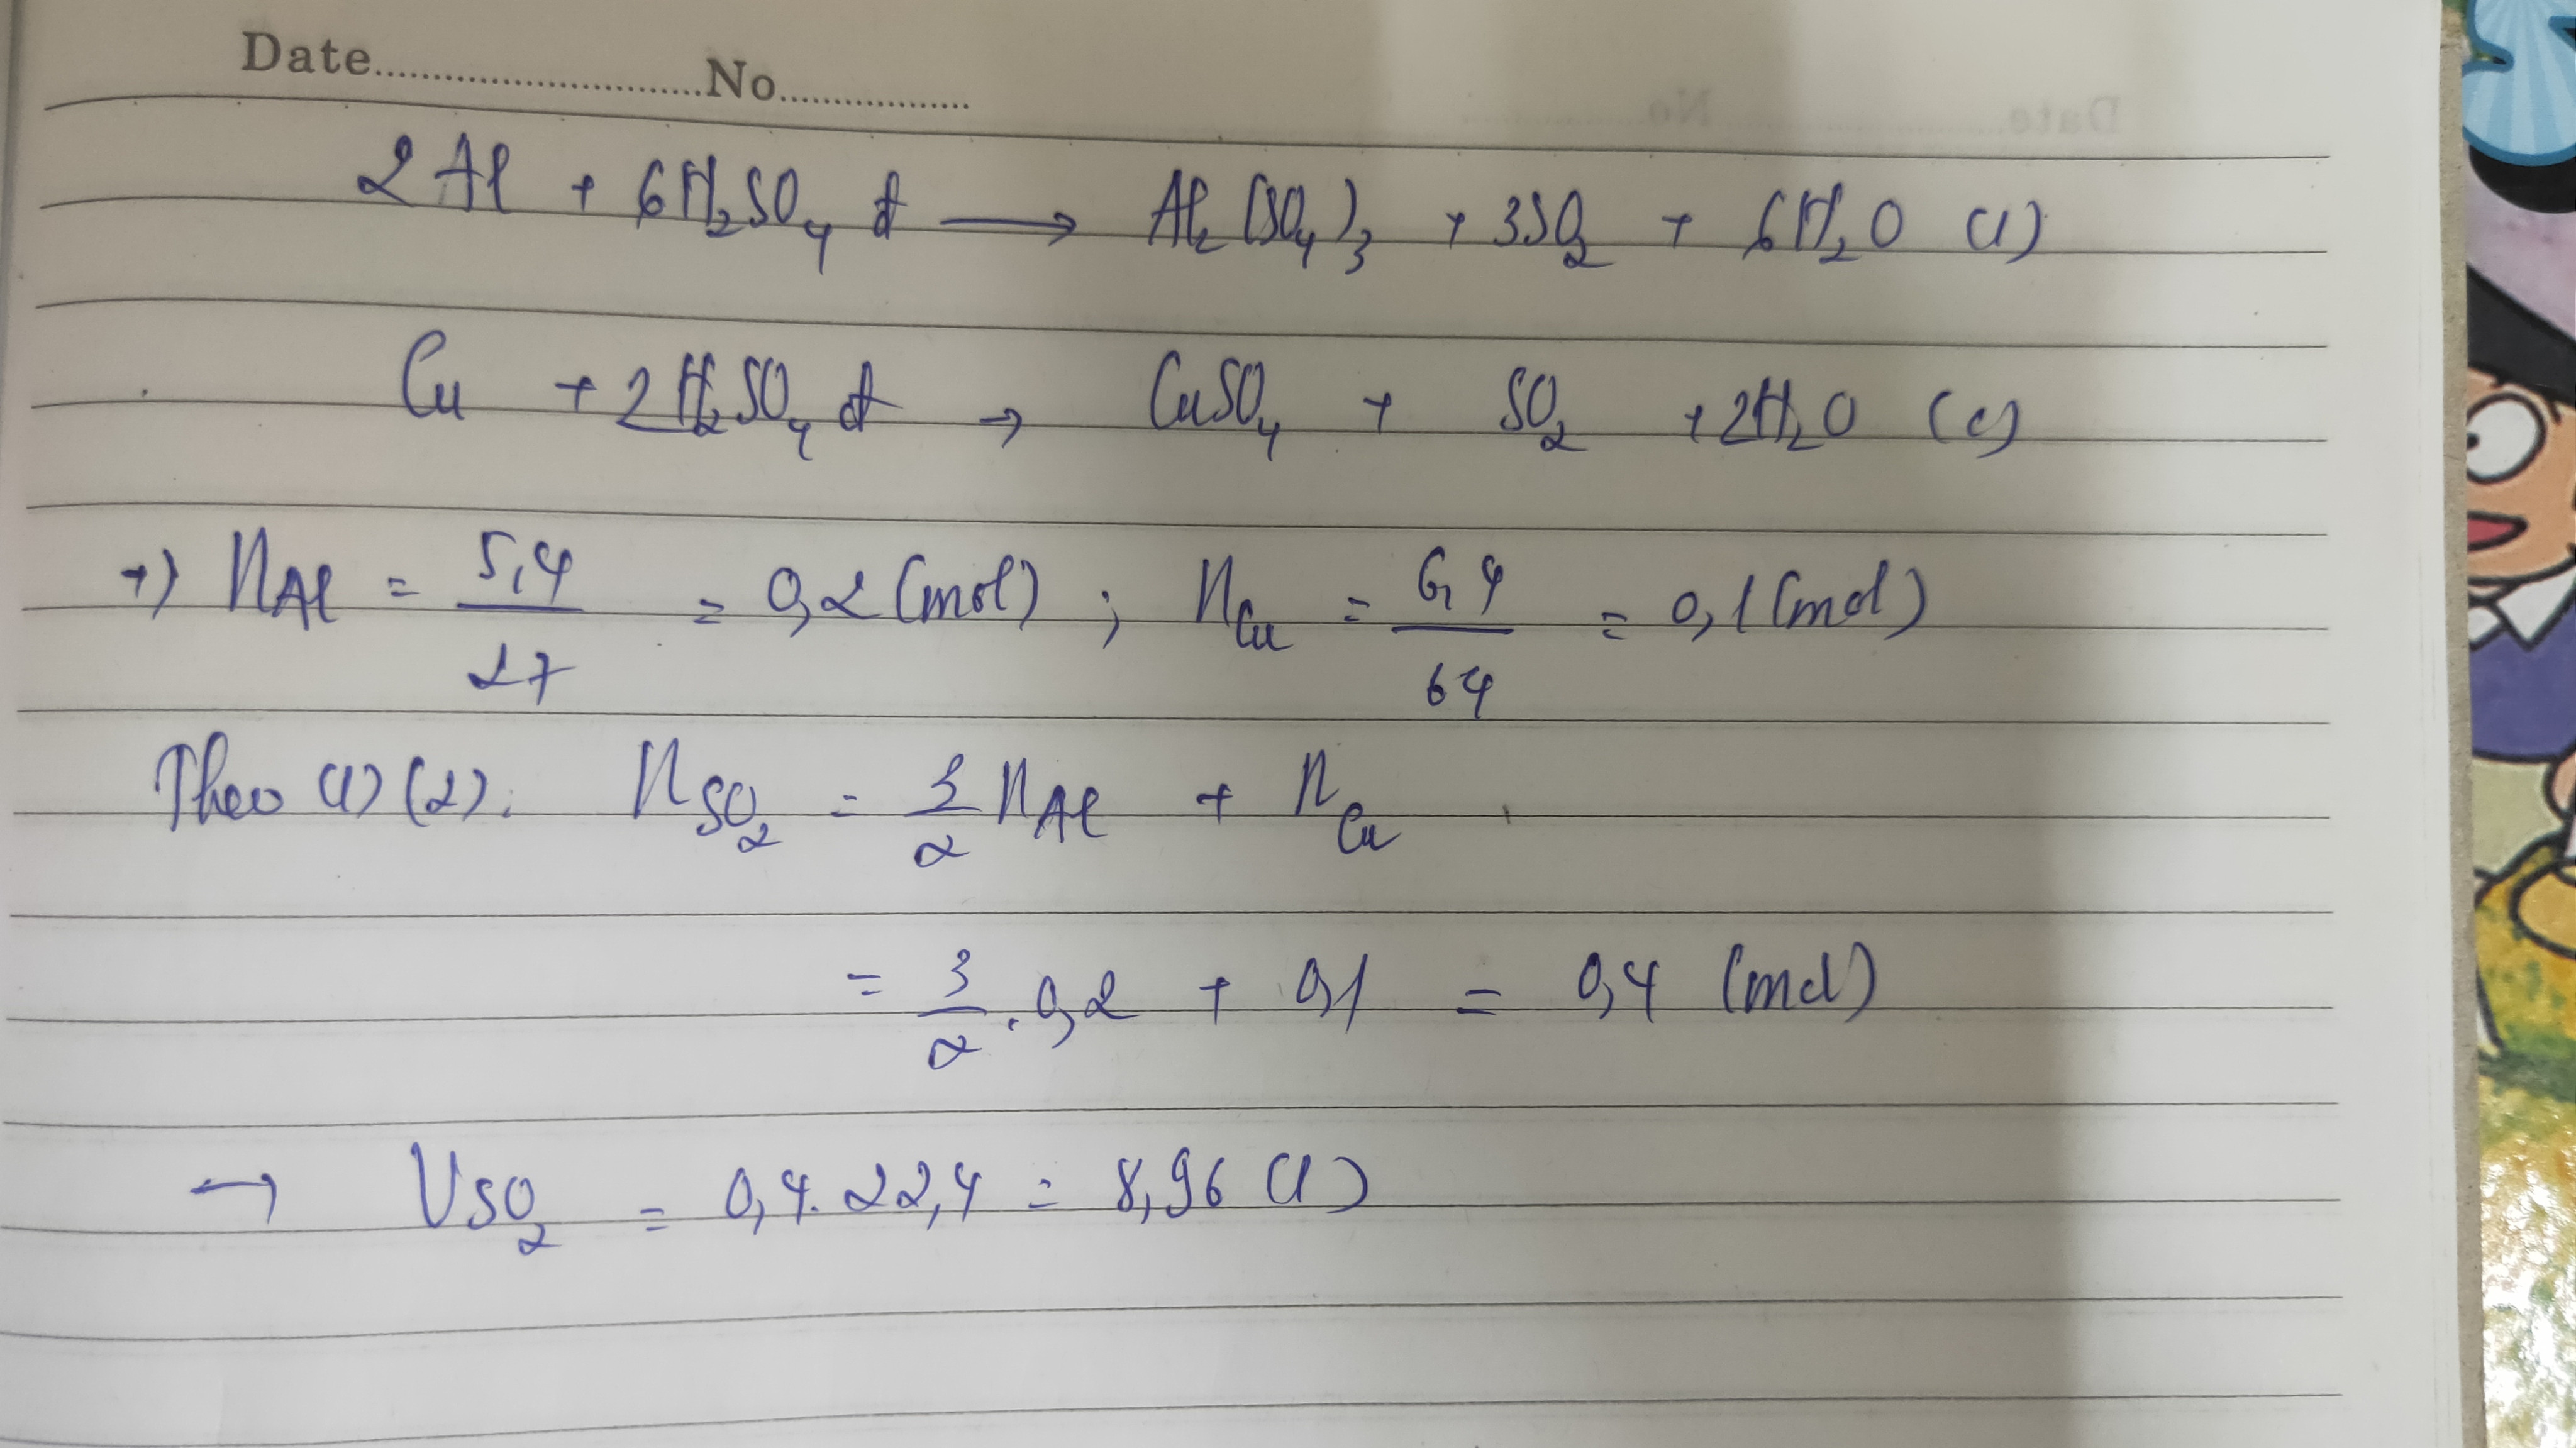 Date..............................No..................
2Al + 6H₂SO₄ đ ⟶ Al₂(SO₄)₃ + 3SO₂ + 6H₂O (1)
Cu + 2H₂SO₄ đ → CuSO₄ + SO₂ + 2H₂O (2)
→) nAl = 5,4/27 = 0,2 (mol) ; nCu = 6,4/64 = 0,1 (mol)
Theo (1) (2): nSO₂ = 3/2 nAl + nCu
= 3/2 . 0,2 + 0,1 = 0,4 (mol)
→ VSO₂ = 0,4. 22,4 = 8,96 (l)